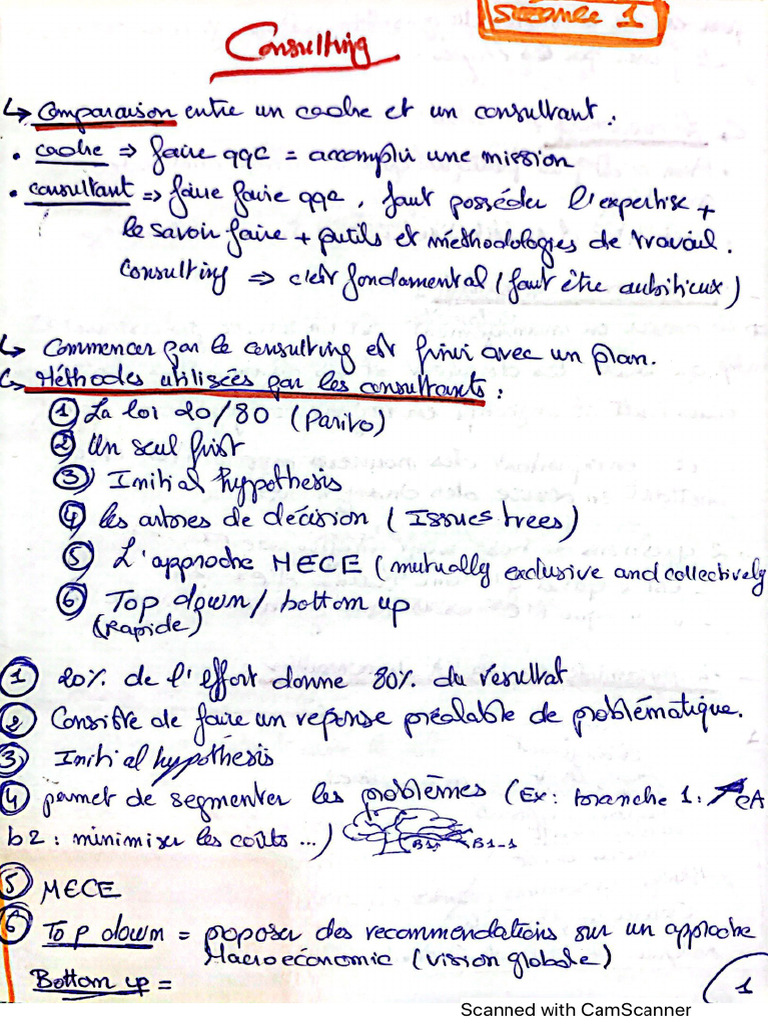 Séance 1
Consulting
↳ Comparaison entre un cadre et un consultant :
• cadre ⇒ faire qqc = accomplir une mission
• consultant ⇒ faire faire qqc, faut posséder l'expertise +
le savoir faire + outils et méthodologies de travail.
Consulting ⇒ c'est fondamental (faut être ambitieux)
↳ Commencer par le consulting est finir avec un plan.
↳ Méthodes utilisées par les consultants :
① La loi 20/80 (Parito)
② Un seul first
③ Initial hypothesis
④ les arbres de décision (Issues trees)
⑤ L'approche MECE (mutually exclusive and collectively
⑥ Top down / bottom up
(Rapide)
① 20% de l'effort donne 80% du resultat
② Consiste de faire un reponse préalable de problématique.
③ Initial hypothesis
④ permet de segmenter les problèmes (Ex: branche 1: ↗ CA
b2 : minimiser les coûts ...) B1 B1-1
⑤ MECE
⑥ Top down = proposer des recommendations sur un approche
Macroeconomic (vision globale)
Bottom up =
1
Scanned with CamScanner